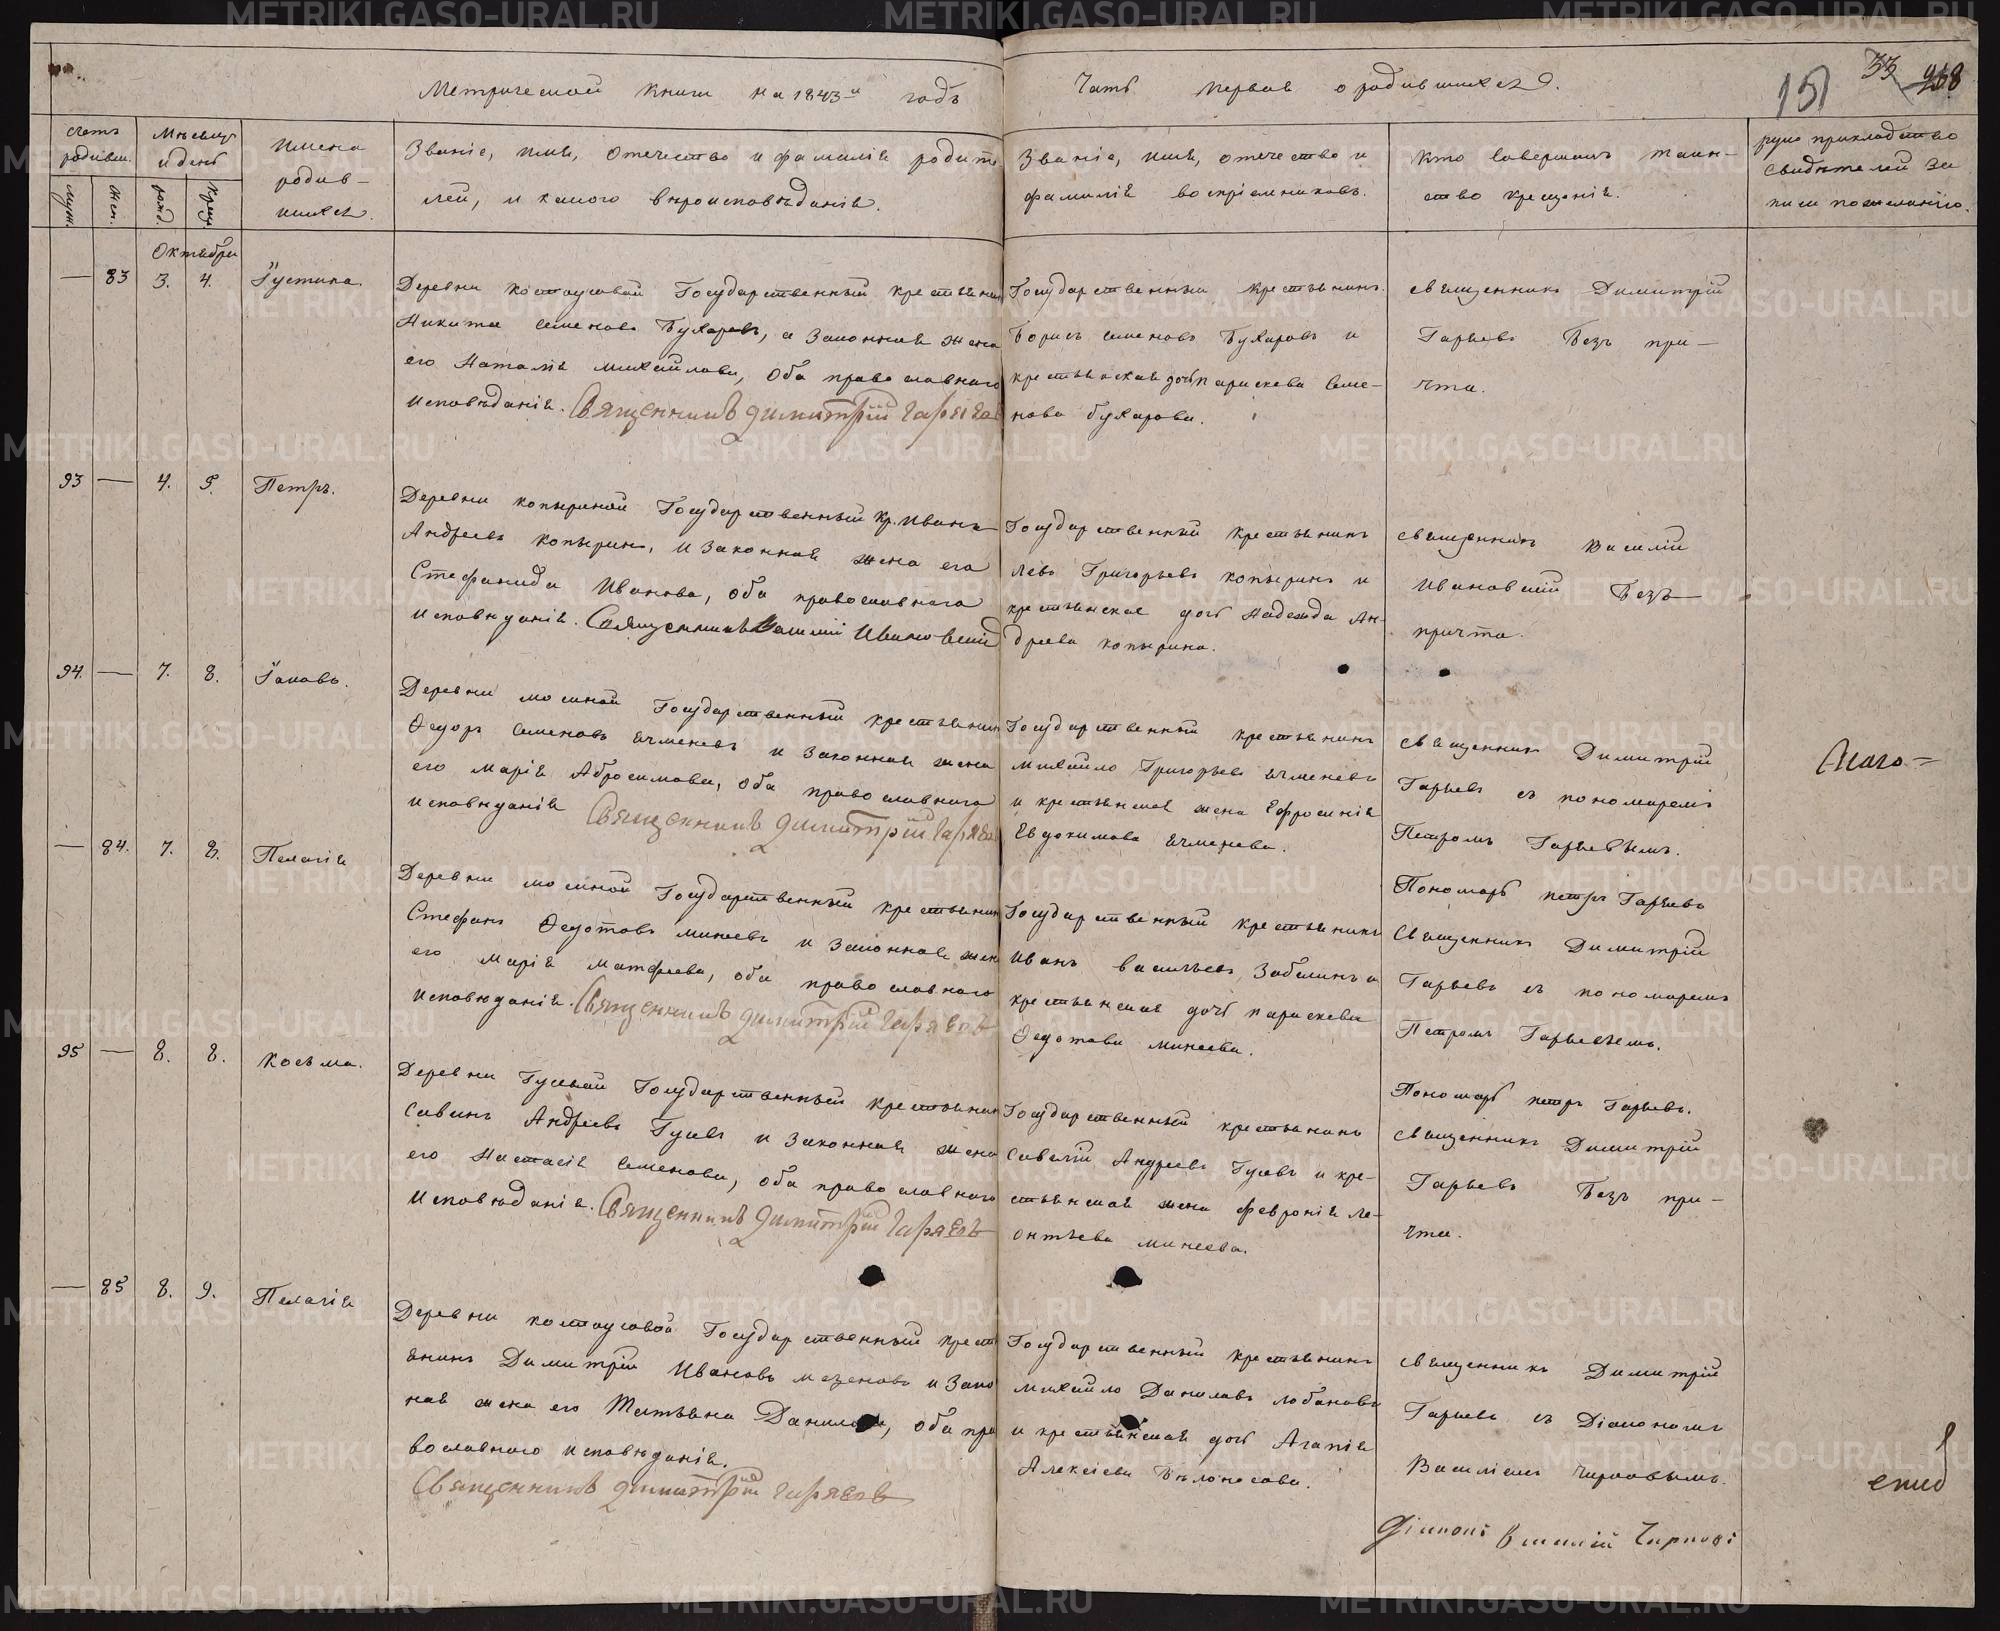 Метрической книги на 1843й годъ
Часть первая о родившихся.
151 33
счетъ родивш.
муж. жен.
Мѣсяцъ и день
рожд. крещ.
Имена родив-
шихся.
Званіе, имя, отечество и фамилія родите
лей, и какого вѣроисповѣданія.
Званіе, имя, отечество и
фамилія воспріемниковъ.
Кто совершалъ таин-
ство крещенія.
руко прикладство
свидѣтелей за
писи по желанію.
Октября
— 83 3. 4. Іустина
Деревни костоусовой Государственный крестьянинъ
Никита Семеновъ Бухаровъ, и законная жена
его Наталія михайлова, оба православнаго
исповѣданія. Священникъ димитрій гаряевъ
Государственный крестьянинъ
Борисъ семеновъ Бухаровъ и
крестьянская дочь параскева Семе-
нова бухарова.
священникъ Димитрій
Гаряевъ Безъ при-
чта.
93 — 4. 5. Петръ.
Деревни копыриной Государственный кр. Иванъ
Андреевъ копыринъ, и законная жена его
Стефанида Иванова, оба православнаго
исповѣданія. Священникъ Василій Ивановскій
Государственный крестьянинъ
Левъ Григорьевъ копыринъ и
крестьянская дочь Надежда Ан-
дреева копырина.
священникъ Василій
Ивановскій Безъ
причта.
94. — 7. 8. Іаковъ.
Деревни мосиной Государственный крестьянин
Ѳедоръ Семеновъ ячменевъ и законная жена
его марія Абросимова, оба православнаго
исповѣданія Священникъ димитрій гаряевъ
Государственный крестьянинъ
михайло Григорьевъ ячменевъ
и крестьянская жена Ефросинія
Евдокимова ячменева.
священникъ Димитрій
Гаряевъ съ пономаремъ
Петромъ Гаряевымъ.
Пономарь петръ Гаряевъ
— 84. 7. 8. Пелагія
Деревни мосиной Государственный крестьянин
Стефанъ Ѳедотовъ минѣевъ и законная жен
его марія матфеева, оба православнаго
исповѣданія. Священникъ димитрій гаряевъ
Государственный крестьянинъ
Иванъ васильевъ Забелинъ и
крестьянская дочь параскева
Ѳедотова минеева.
Священникъ Димитрій
Гаряевъ съ пономаремъ
Петромъ Гаряевымъ.
Пономарь петръ Гаряевъ.
95 — 8. 8. Косьма.
Деревни Гусевой Государственный крестьянин
Савинъ Андреевъ Гусевъ и законная жена
его Настасія Семенова, оба православнаго
исповѣданія. Священникъ димитрій гаряевъ
Государственный крестьянинъ
Савелій Андреевъ Гусевъ и кре-
стьянская жена февронія Ле-
онтьева минеева.
священникъ Димитрій
Гаряевъ Безъ при-
чта.
— 85 8. 9. Пелагія
Деревни костоусовой Государственный крест
янинъ Димитрій Ивановъ мезеновъ и Зако
ная жена его Татьяна Данилова, оба пра
вославнаго исповѣданія.
Священникъ димитрій гаряевъ
Государственный крестьянинъ
михайло Даниловъ лобановъ
и крестьянская дочь Агапія
Алексіева Бѣлоносова.
священникъ Димитрій
Гаряевъ съ Діакономъ
Василіемъ Чирковымъ.
Діаконъ Василій Чирковъ
METRIKI.GASO-URAL.RU